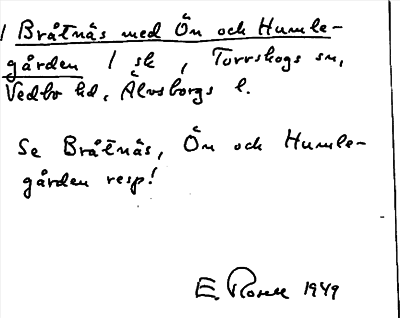 / Bråtnäs med Ön och Humle-
gården / sk, Torrskogs sn,
Vedbo hd, Älvsborgs l.
Se Bråtnäs, Ön och Humle-
gården resp!
E. Rosell 1949